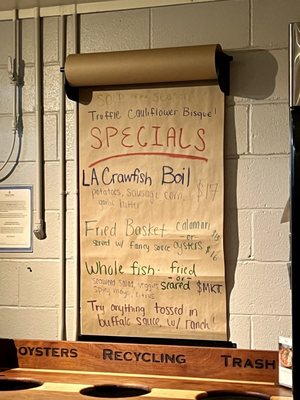 Truffle Cauliflower Bisque!
SPECIALS
LA Crawfish Boil
potatoes, sausage, corn, $17
garlic butter
Fried Basket calamari
-or-
served w/ fancy sauce oysters
$16
Whole fish - fried
-or-
seared $MKT
seaweed salad, veggies
spicy mayo, citrus
Try anything tossed in
buffalo sauce w/ ranch!
OYSTERS RECYCLING TRASH